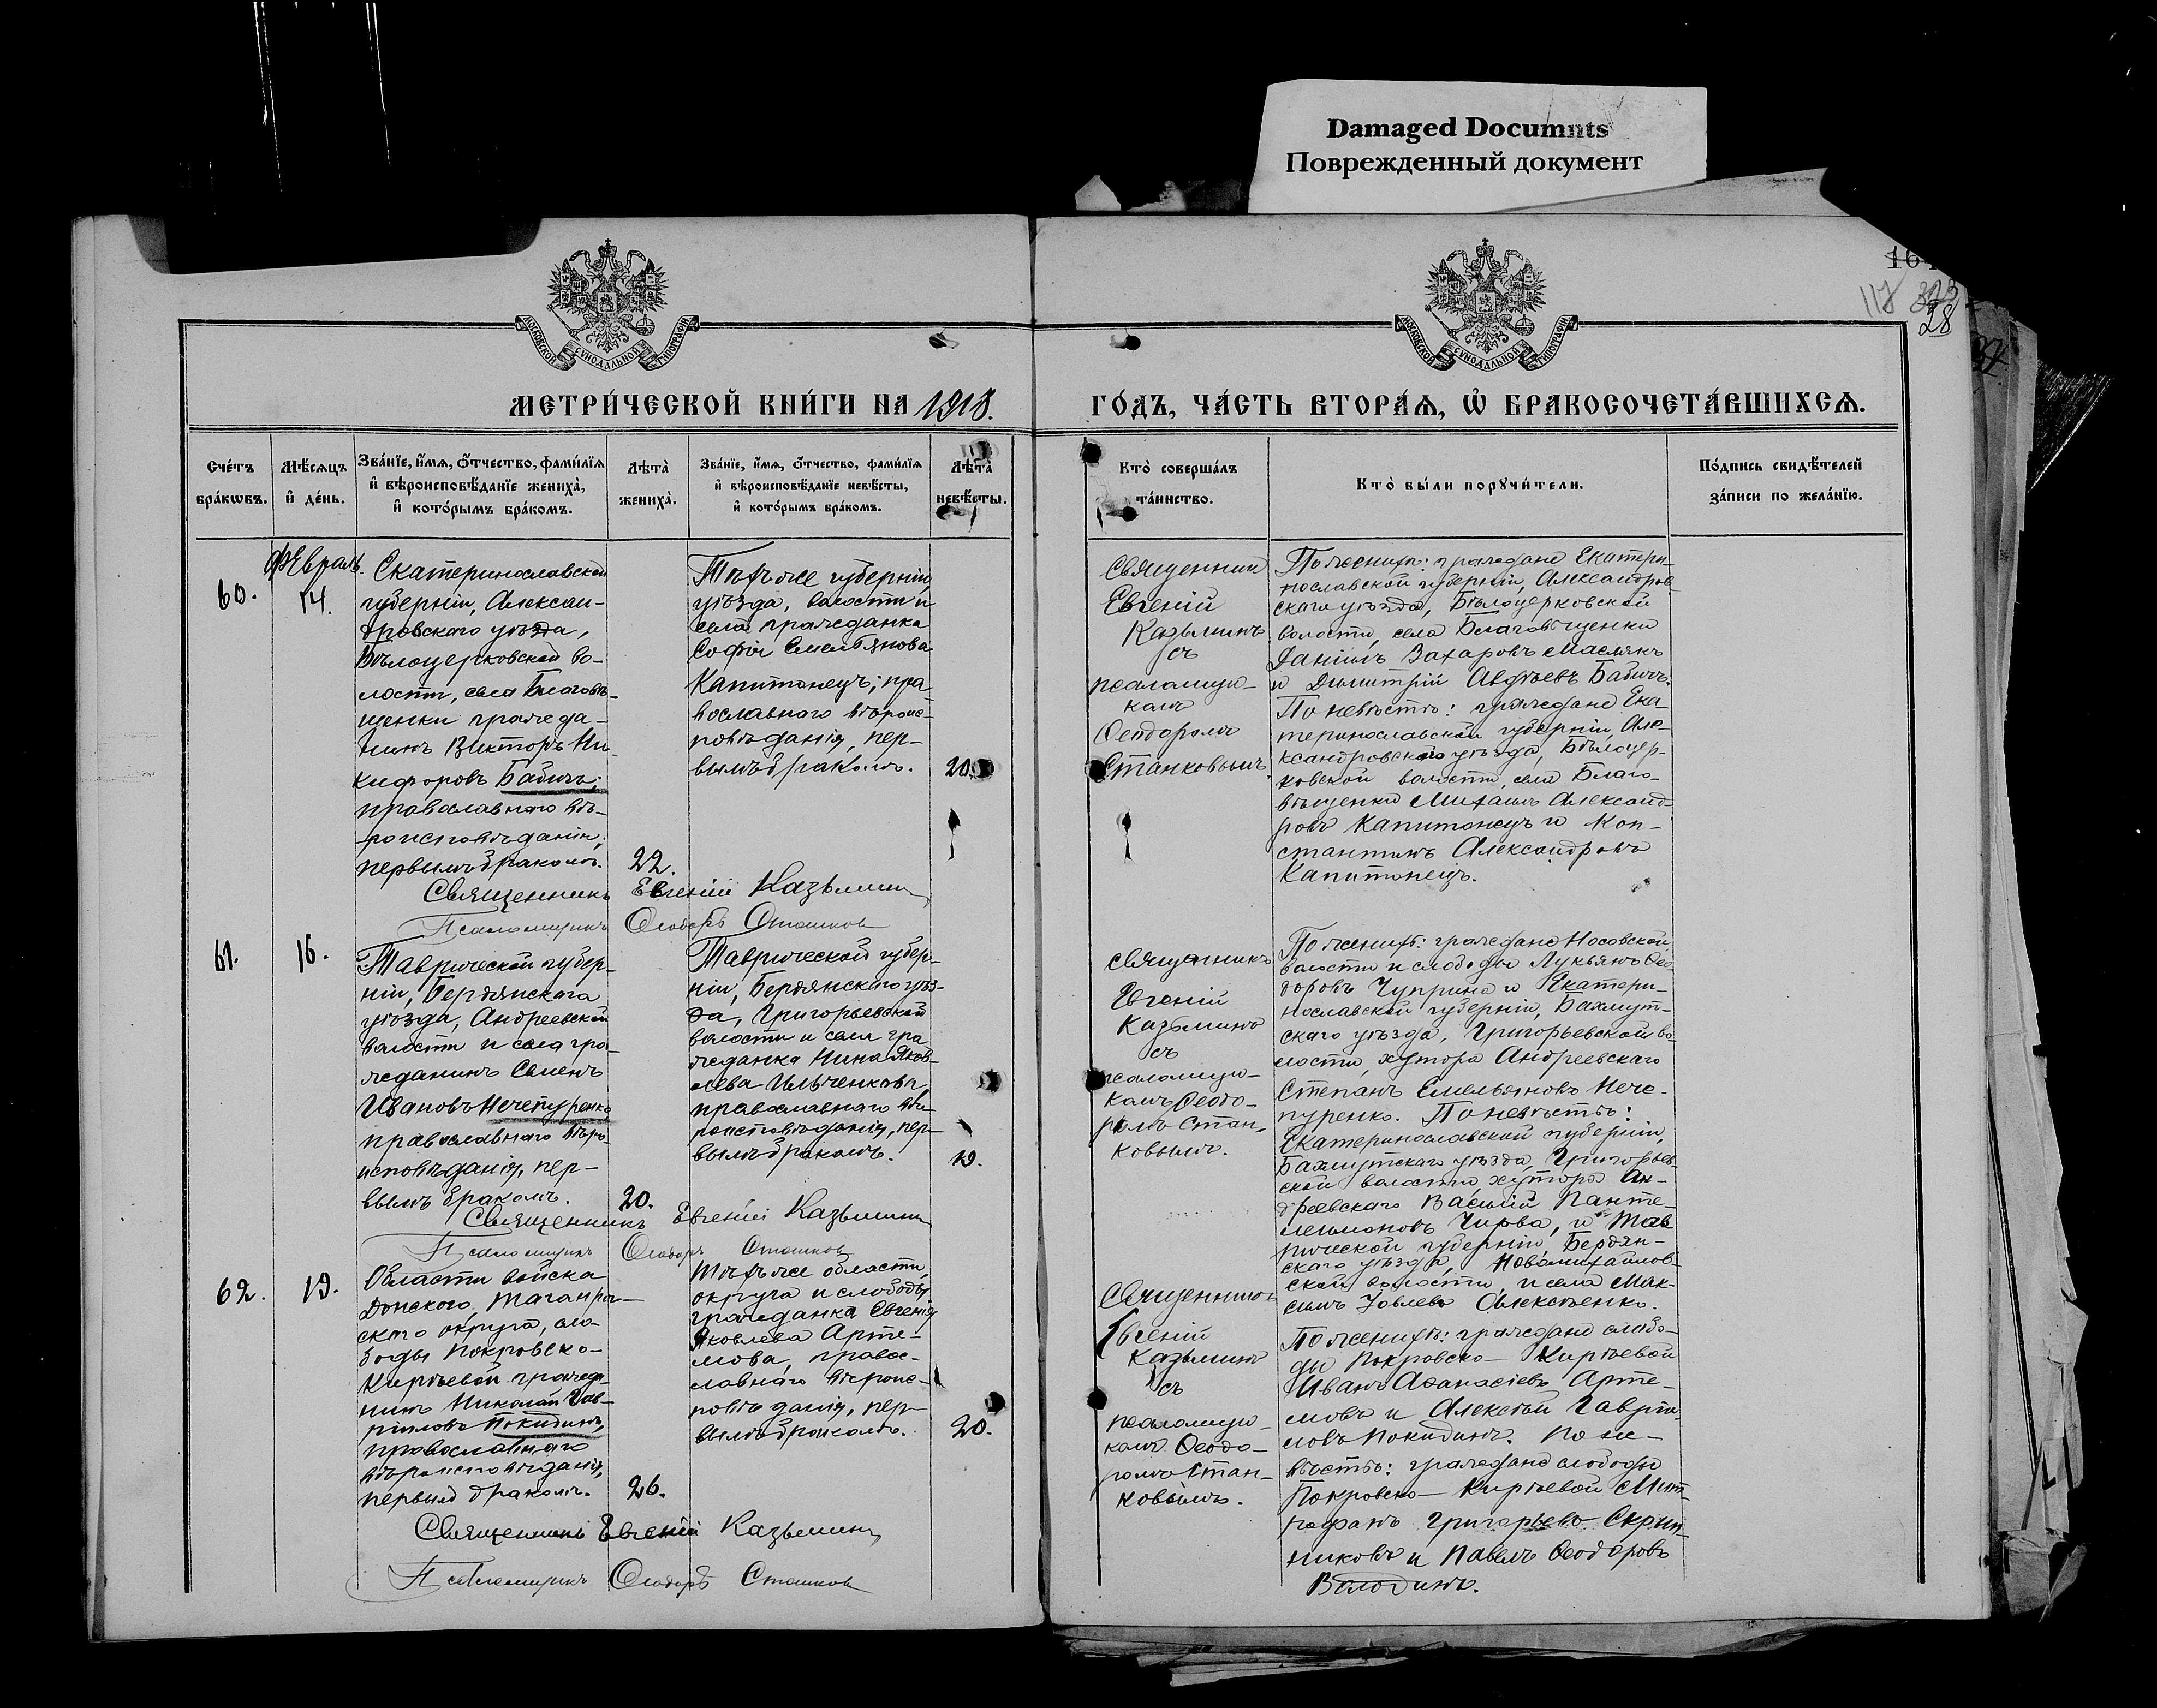 Damaged Documnts
Поврежденный документ
МОСКОВСКОЙ СѴНОДАЛЬНОЙ ТИПОГРАФІИ
МОСКОВСКОЙ СѴНОДАЛЬНОЙ ТИПОГРАФІИ
117
28
МЕТРИ́ЧЕСКОЙ КНИ́ГИ НА 1918.
ГО́ДЪ, ЧА́СТЬ ВТОРА́Ѧ, Ѡ҆ БРАКОСОЧЕТА́ВШИХСѦ.
Счéтъ бра́кѡвъ.
Мѣ́сѧцъ и҆ де́нь.
Зва́нїе, и҆́мѧ, ѻ҆́тчество, фами́лїѧ
и҆ вѣроисповѣ́данїе жениха̀,
и҆ кото́рымъ бра́комъ.
Лѣ́та̀ жениха̀.
Зва́нїе, и҆́мѧ, ѻ҆́тчество, фами́лїѧ
и҆ вѣроисповѣ́данїе невѣ́сты,
и҆ кото́рымъ бра́комъ.
Лѣ́та̀ невѣ́сты.
Кто̀ соверша́лъ
та́инство.
Кто̀ бы́ли порꙋчи́тели.
По́дпись свидѣ́телей
за́писи по жела́нїю.
60.
Февраль.
14.
Екатеринославской
губерніи, Алексан-
дровского уѣзда,
Бѣлоцерковской во-
лости, села Благовѣ-
щенки гражда-
нинъ Викторъ Ни-
кифоровъ Бабичъ;
православнаго вѣ-
роисповѣданія,
первымъ бракомъ.
22.
Тѣхъ же губерніи,
уѣзда, волости и
села гражданка
Софія Емельянова
Капитонецъ; пра-
вославного вѣроис-
повѣданія, пер-
вымъ бракомъ.
20.
Священник
Евгеній
Казьминъ
съ
псаломщи-
комъ
Ѳеодоромъ
Станковымъ.
По женихѣ: граждане Екатери-
нославской губерніи, Александров-
скаго уѣзда, Бѣлоцерковской
волости, села Благовѣщенки
Даніилъ Захаровъ Маслякъ
и Димитрій Авдѣевъ Бабичъ.
По невѣстѣ: граждане Ека-
теринославской губерніи, Але-
ксандровскаго уѣзда, Бѣлоцер-
ковской волости, села Благо-
вѣщенки Михаилъ Александ-
ровъ Капитонецъ и Кон-
стантинъ Александровъ
Капитонецъ.
Священникъ Евгеній Казьминъ
Псаломщикъ Ѳеодоръ Сташков
61.
16.
Таврической губер-
ніи, Бердянскаго
уѣзда, Андреевской
волости и села гра-
жданинъ Семенъ
Ивановъ Нечепуренко
православнаго вѣро-
исповѣданія, пер-
вымъ бракомъ.
20.
Таврической губер-
ніи, Бердянскаго уѣз-
да, Григорьевской
волости и села гра
жданка Нина Яков-
лева Ильченкова
православнаго вѣ-
роисповѣданія, пер-
вымъ бракомъ.
19.
Священникъ
Евгеній
Казьминъ
съ
псаломщи-
комъ Ѳеодо-
ромъ Стан-
ковымъ.
По женихѣ: граждане Носовской
волости и слободы Лукьянъ Ѳео-
доровъ Чуприна и Екатери-
нославской губерніи, Бахмут-
скаго уѣзда, Григорьевской во-
лости, хутора Андреевскаго
Степанъ Емельяновъ Нече-
пуренко. По невѣстѣ:
Екатеринославской губерніи,
Бахмутскаго уѣзда, Григорьев-
ской волости, хутора Ан-
дреевскаго Василій Панте-
леимоновъ Чирва, и Тав-
рической губерніи, Бердян-
скаго уѣзда, Новомихайлов-
ской волости, и села Мак-
симъ Алексѣенко.
Священникъ Евгеній Казьминъ
Псаломщикъ Ѳеодоръ Сташков
62.
19.
Области войска
Донского, Таганрог-
скаго округа, сло-
боды Покровско-
Кирѣевой гражда-
нинъ Николай Гав-
риловъ Покидинъ,
православнаго
вѣроисповѣданія,
первымъ бракомъ.
26.
Тѣхъ же области,
округа и слободы
гражданка Евгенія
Яковлева Арте-
мова, правос-
лавнаго вѣроис-
повѣданія, пер-
вымъ бракомъ.
20.
Священникъ
Евгеній
Казьминъ
съ
псаломщи-
комъ Ѳеодо-
ромъ Стан-
ковымъ.
По женихѣ: граждане слобо-
ды Покровско-Кирѣевой
Иванъ Аѳанасіевъ Арте-
мовъ и Алексѣй Гаври-
ловъ Покидинъ. По не-
вѣстѣ: граждане слободы
Покровско-Кирѣевой Мит-
рофанъ Григорьевъ Скрып-
никовъ и Павелъ Ѳеодоровъ
Володинъ.
Священникъ Евгеній Казьминъ
Псаломщикъ Ѳеодоръ Сташков